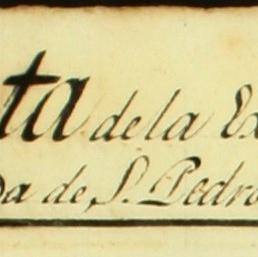 ta de la Ex
da de S. Pedro